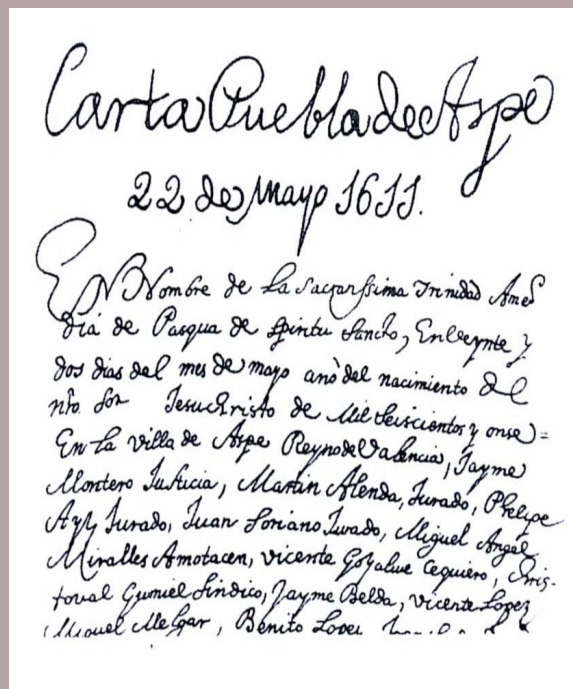 Carta Puebla de Aspe
22 de Mayo 1611.
En Nombre de La Sacratissima Trinidad Ame
Dia de Pasqua de Spiritu Sancto, En Veynte y
dos dias del mes de mayo anò del nacimiento del
nro. Sor Jesuchristo de Mil Seiscientos y onse =
En La villa de Aspe Reyno de Valencia, Jayme
Montero Justicia, Martin Alenda, Jurado, Phelipe
Jurado, Juan Soriano Jurado, Miguel Angel
Miralles Amotacen, vicente Gozalue Cequiero, Cris-
toval Gumiel Sindico, Jayme Belda, vicente Lopez
Miguel Melgar, Benito Lopez